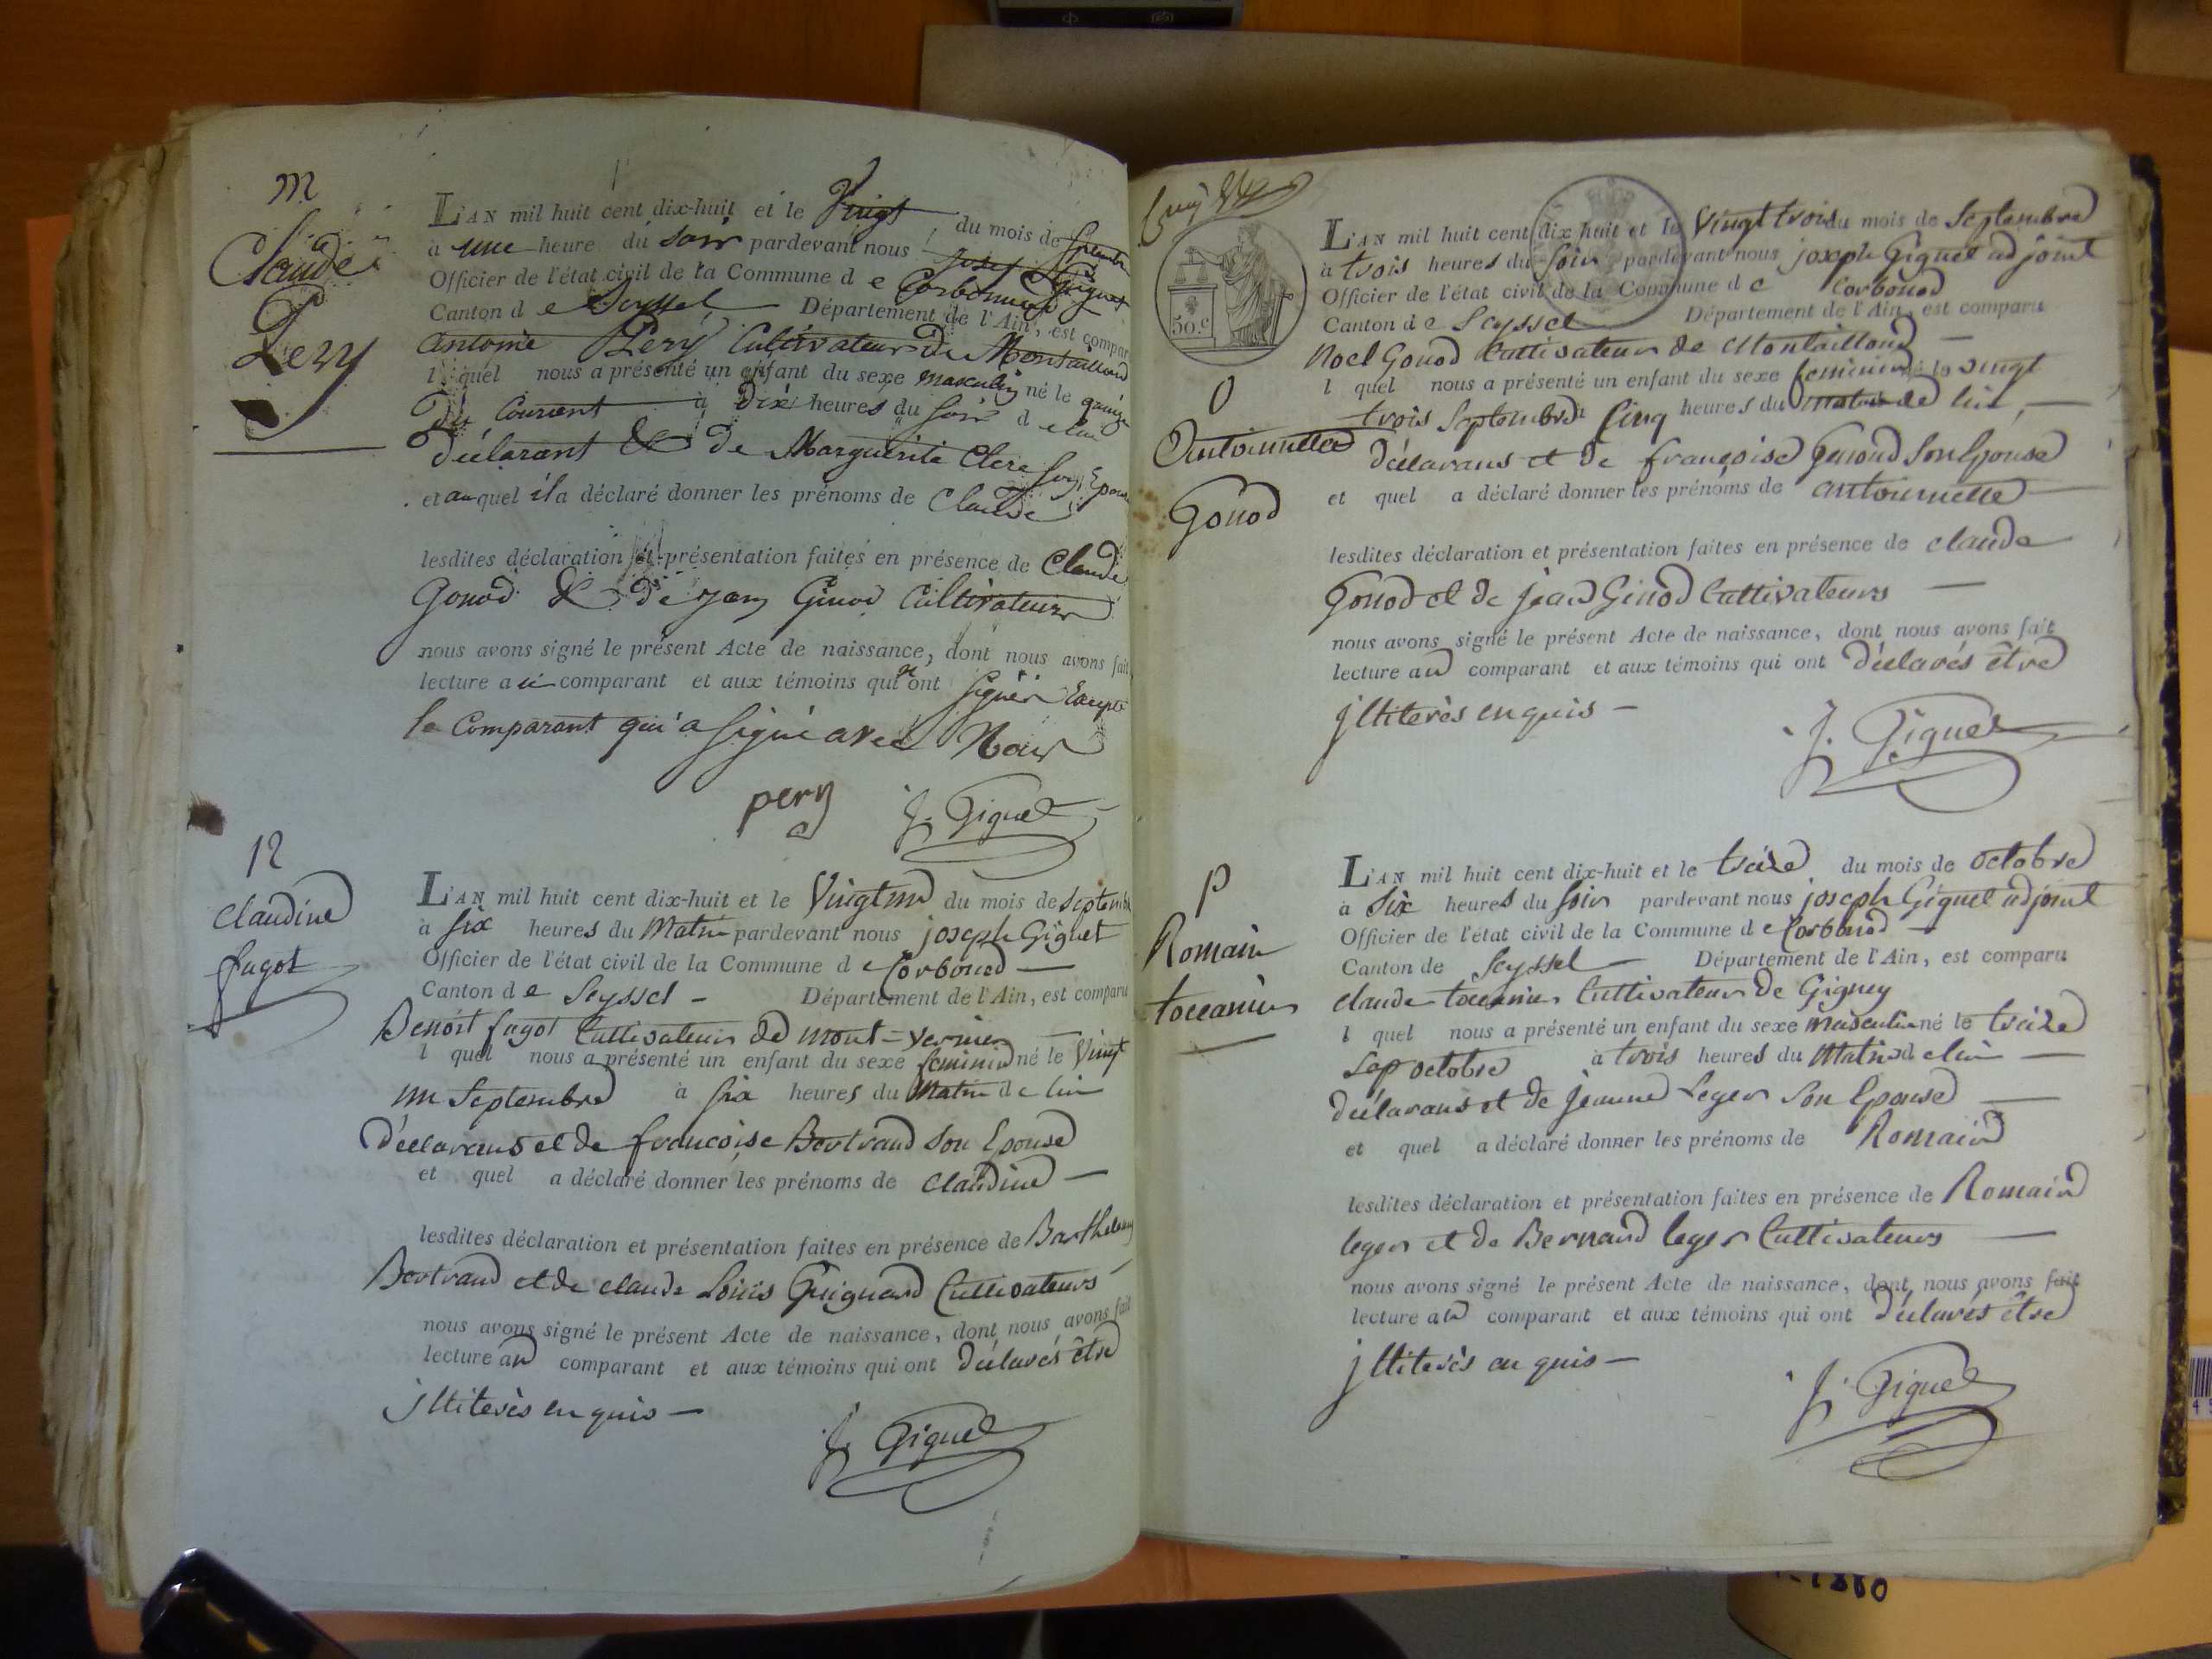 M
Claude
Pery
L'AN mil huit cent dix-huit et le Vingt du mois de Septembre
à une heure du soir pardevant nous Josep Giguet
Officier de l'état civil de la Commune d e Corbonod
Canton d e Seyssel Département de l'Ain, est compar
antoine Pery Cultivateur de Montaillloud
l quel nous a présenté un enfant du sexe masculin né le quinze
Du Courant à Dix heures du soir d e lui
déclarant & de Marguerite Clerc son Epouse
et auquel il a déclaré donner les prénoms de Claude
lesdites déclaration et présentation faites en présence de Claude
Gonod & de jean Ginod Cultivateurs
nous avons signé le présent Acte de naissance, dont nous avons fait
lecture au comparant et aux témoins qui ont signér Excepté
le Comparant qui a signé avec Nous
pery J. Giguet
N
claudine
fagot
L'AN mil huit cent dix-huit et le Vingt un du mois de septembre
à six heures du Matin pardevant nous joseph Giguet
Officier de l'état civil de la Commune d e Corbonod
Canton d e Seyssel Département de l'Ain, est comparu
Benoit fagot Cultivateur de mont-vernier
l quel nous a présenté un enfant du sexe feminin né le Vingt
un Septembre à six heures du Matin de lui
déclarans et de francoise Bertrand son Epouse
et quel a déclaré donner les prénoms de claudine
lesdites déclaration et présentation faites en présence de Barthelemy
Bertrand et de claude Loüis Guignard Cultivateurs
nous avons signé le présent Acte de naissance, dont nous avons fait
lecture au comparant et aux témoins qui ont déclarés être
jlliterès enquis
J. Giguet
50 c.
O
Antoinette
Gonod
L'AN mil huit cent dix huit et le Vingt trois du mois de Septembre
à trois heures du soir pardevant nous joseph Giguet adjoint
Officier de l'état civil de la Commune d e Corbonod
Canton d e Seyssel Département de l'Ain, est comparu
Noel Gonod Cultivateur de Montailloud
l quel nous a présenté un enfant du sexe feminin né le vingt
trois Septembre à Cinq heures du matin de lui
déclarans et de françoise Genod son Epouse
et quel a déclaré donner les prénoms de antoinnette
lesdites déclaration et présentation faites en présence de claude
Gonod et de jean Ginod Cultivateurs
nous avons signé le présent Acte de naissance, dont nous avons fait
lecture au comparant et aux témoins qui ont déclarés être
jlliterès enquis
J. Giguet
P
Romain
toccanier
L'AN mil huit cent dix-huit et le treize du mois de octobre
à Six heures du soir pardevant nous joseph Giguet adjoint
Officier de l'état civil de la Commune d e Corbonod
Canton de Seyssel Département de l'Ain, est comparu
claude toccanier Cultivateur de Gigney
l quel nous a présenté un enfant du sexe masculin né le treize
octobre à trois heures du Matin de lui
déclarans et de jeanne Leger son Epouse
et quel a déclaré donner les prénoms de Romain
lesdites déclaration et présentation faites en présence de Romain
leger et de Bernard leger Cultivateurs
nous avons signé le présent Acte de naissance, dont nous avons fait
lecture au comparant et aux témoins qui ont déclarés être
jlliterès enquis
J. Giguet